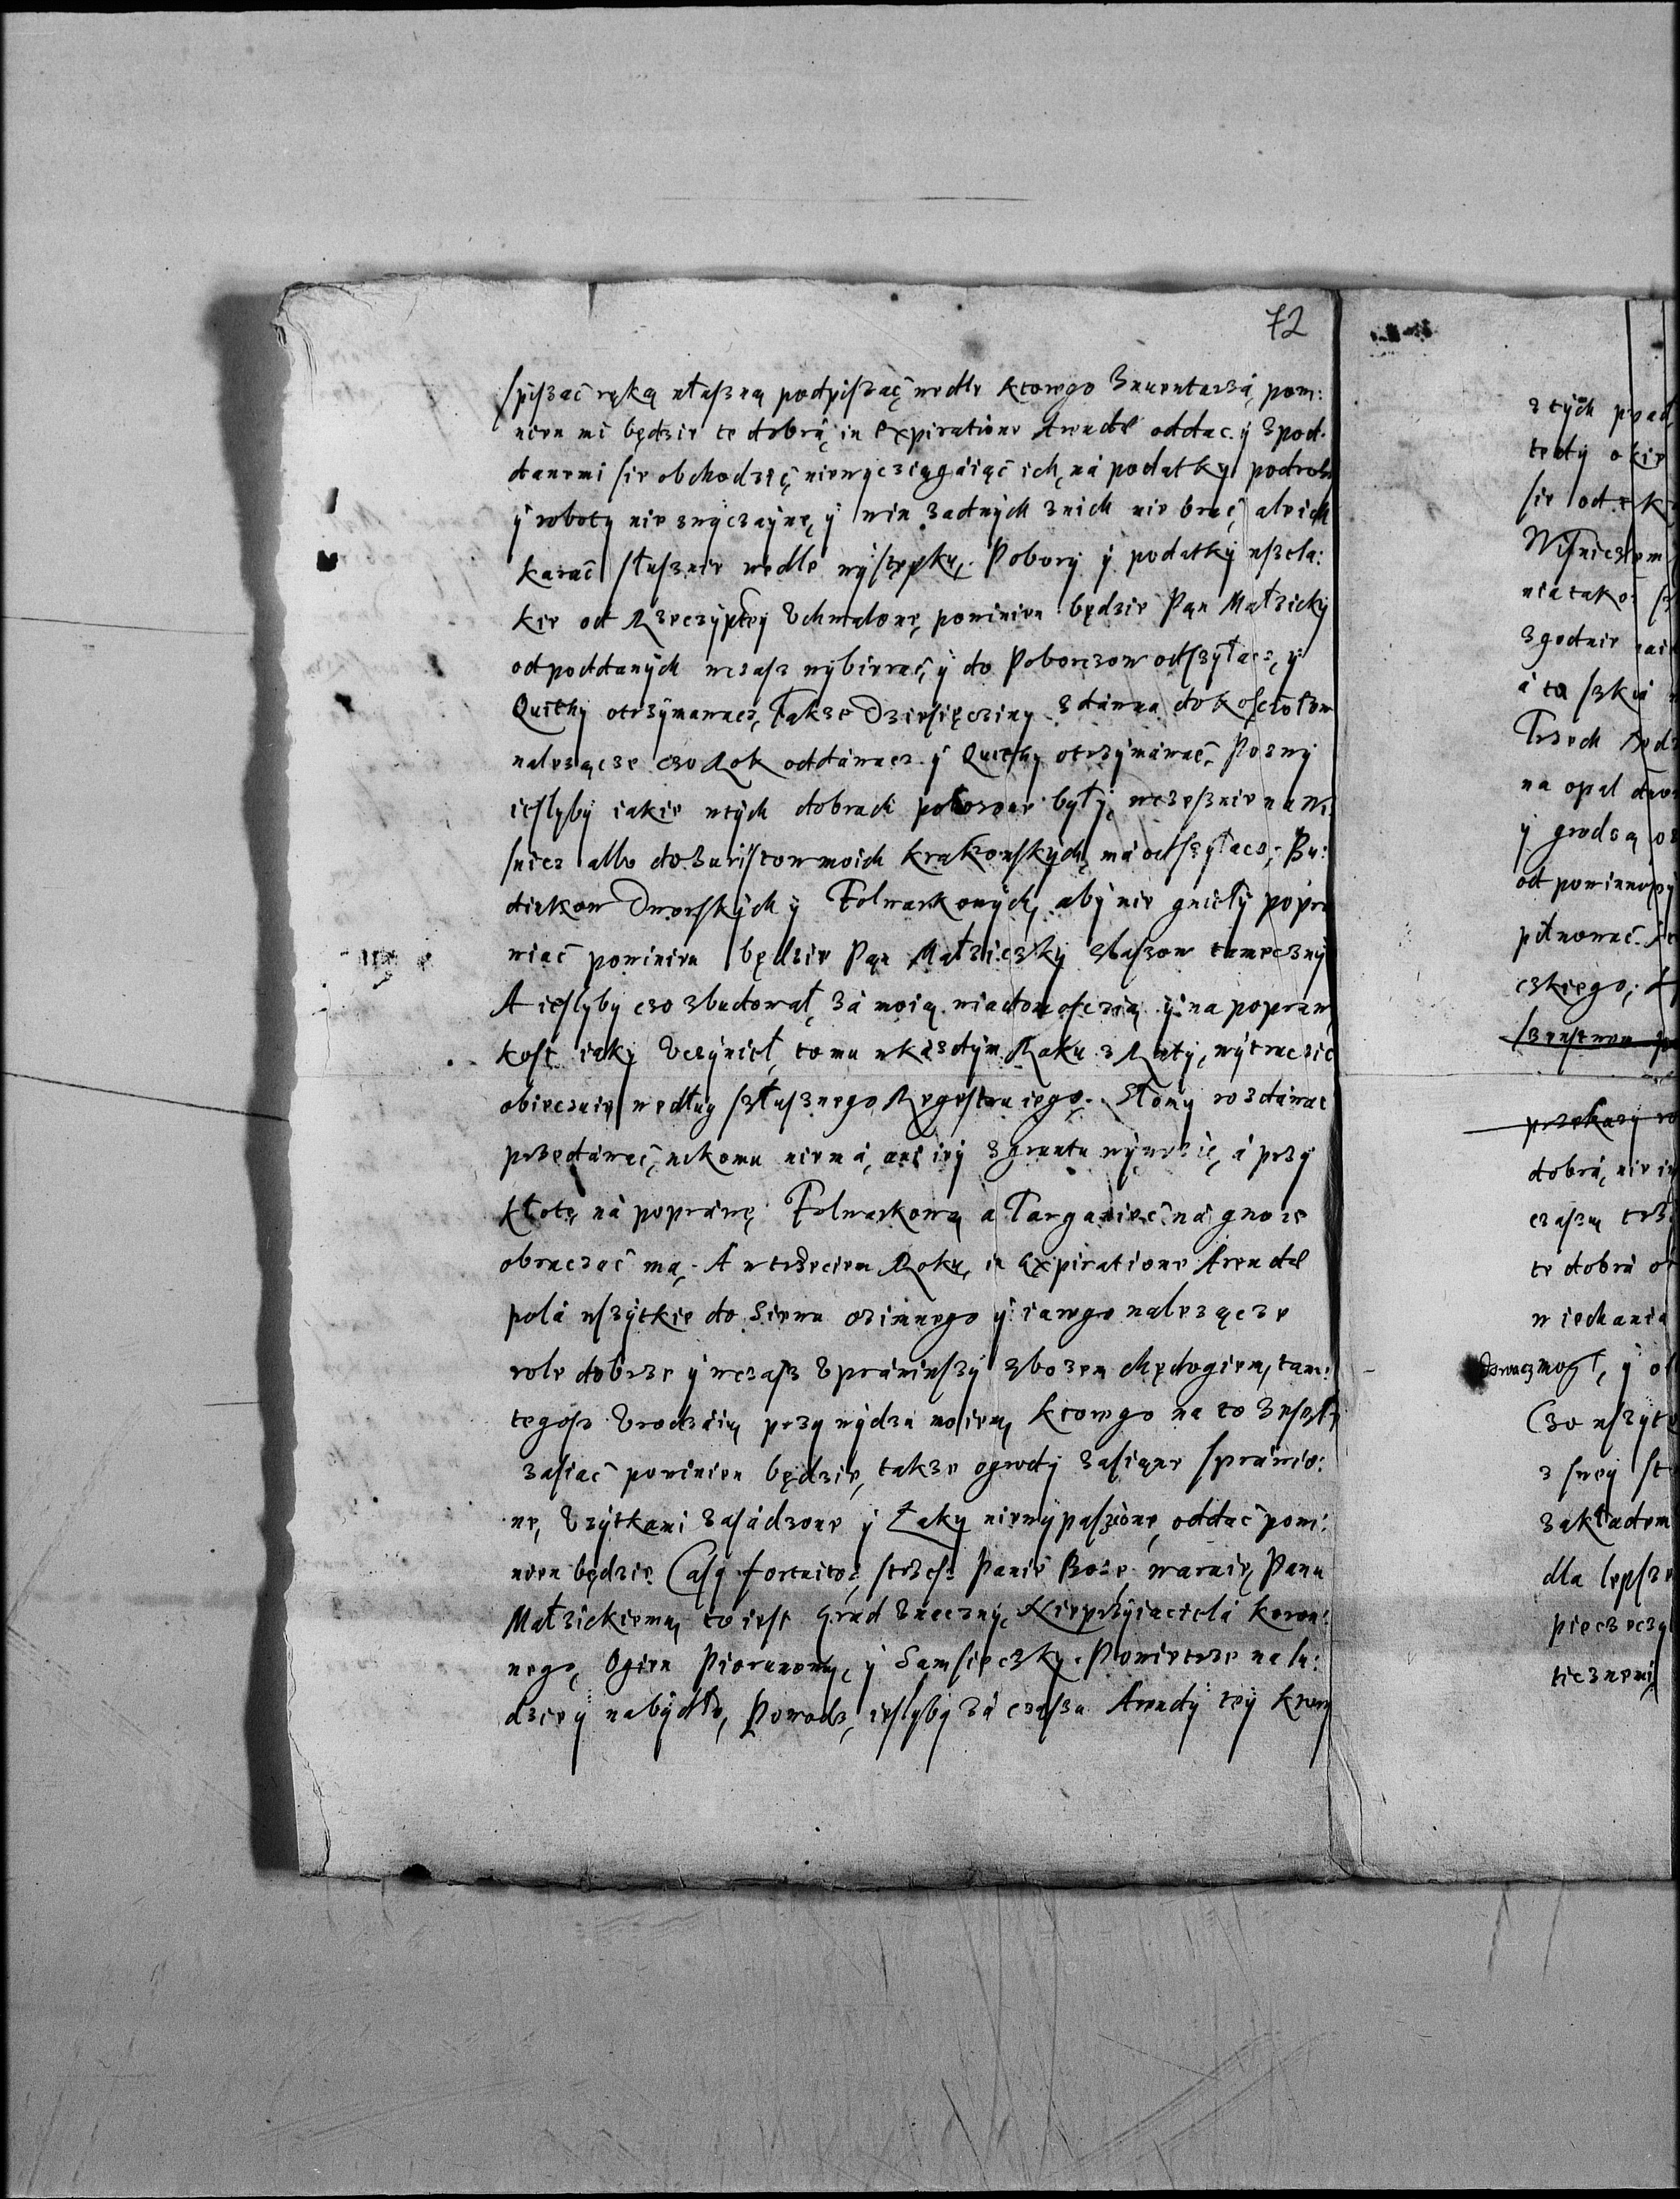 72
spiszać ręką własną podpiszać wedle ktorego Inuentarzá, powi:
nien mi będzie te dobrá in expiratione Arendae oddac y spod-
danemi sie obchodzić, niewyciągáiąć ich, ná podatky podroby
y roboty nie zwyczayne, y win zadnych znich nie brać, ale ich
karać słusznie wedle występku. Pobory y podatky wszela:
kie od Rzeczyptey Vchwalone powinien będzie Pan Małzicky
od poddanych wczas wybierać, y do Poborczow odszyłacz, y
Quithy otrzymawacz, Takze Dziesięcziny zdawna do kosciołow
nalezącze czo Rok oddáwacz y Quithy otrzymáwać. Pozwy
iesliby iakie wtych dobrach połozone były, wczesznie na Wi:
snicz albo do Iuristow moich krakowskych má odszyłacz. Bu:
dinkow Dworskych y Folwarkowych, aby nie gnieły popra
wiać powinien będzie Pan Małzieczky zlaszow tameczny
A iesliby czo zbudował, zá moią wiadomosczią y na popraw
koszt iaky Vczynieł, tomu w kazdym Roku z Raty, wytraczić
obieczuię według szłusznego Regestru iego. Słomy rozdáwac
przedáwać, nikomu niema, ani iey z gruntu wywozić, á przy
kłotę ná popráwę Folwarkową a Targaniec ná gnoie
obraczać ma. A w trzeciem Roku, in Expiratione Arendae
polá wszytkie do Siewu ozimnego y iarego nalezącze
role dobrze y wczasz Vpráwiwszy zbozem chędogiem, tam:
tegosz Vrodzáiu, przy wydzu moiem, ktorego na to Zeszlę
zasiać powinien będzie, takze ogrody zasiane spráwio:
ne, Vzytkami zasádzone y Łaky niewypaszione oddać powi:
nien będzie Casq fortuitos, strzesz Panie Boze, waruię Panu
Małzickiemu, to iest Grad Znaczny, Nieprzyiacielá koron:
nego, Ogien Piorunowy, y Samsieczky. Powietrze na lu:
dzie y nabydło, Powodz, iesliby zá czaszu Arendy tey ktory
z tych przad
tedy okie
sie od
Wisnicz
zgodnie
Trzech
na opal
y grodzą
od powinnos
pilnowac
czkiego
dobrá, nie
czaszu
te dobrá
w iechania
mogł, y
Czo wszyt
z swey st
zakładem
dla lepsze
pieczeczy
ticznemi